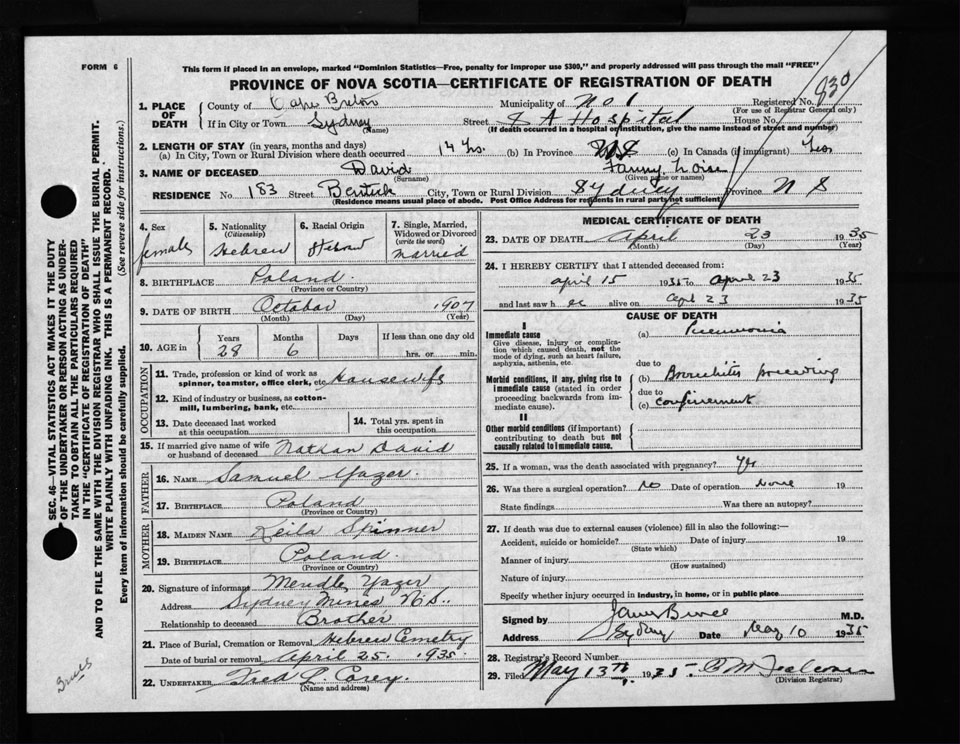 FORM 6
This form if placed in an envelope, marked "Dominion Statistics—Free, penalty for improper use $300," and properly addressed will pass through the mail "FREE"
PROVINCE OF NOVA SCOTIA—CERTIFICATE OF REGISTRATION OF DEATH
830
1. PLACE OF DEATH
County of Cape Breton Municipality of No 1 Registered No.
(For use of Registrar General only)
If in City or Town Sydney Street S A Hospital House No.
(Name) (If death occurred in a hospital or institution, give the name instead of street and number)
2. LENGTH OF STAY (in years, months and days)
(a) In City, Town or Rural Division where death occurred 14 yrs. (b) In Province (c) In Canada (if immigrant)
3. NAME OF DECEASED David Fanny
(Surname) (Given name or names)
RESIDENCE No. 183 Street City, Town or Rural Division Sydney Province N S
(Residence means usual place of abode. Post Office Address for residents in rural parts not sufficient)
4. Sex female
5. Nationality (Citizenship) Hebrew
6. Racial Origin Hebrew
7. Single, Married, Widowed or Divorced (write the word) married
8. BIRTHPLACE Poland.
(Province or Country)
9. DATE OF BIRTH October 1907
(Month) (Day) (Year)
10. AGE Years Months Days If less than one day old
28 6 hrs. or min.
OCCUPATION
11. Trade, profession or kind of work as spinner, teamster, office clerk, etc. Housewife
12. Kind of industry or business, as cotton-mill, lumbering, bank, etc.
13. Date deceased last worked at this occupation
14. Total yrs. spent in this occupation
15. If married give name of wife or husband of deceased Nathan David
FATHER
16. NAME Samuel Yazer.
17. BIRTHPLACE Poland
(Province or Country)
MOTHER
18. MAIDEN NAME Keila Spinner
19. BIRTHPLACE Poland.
(Province or Country)
20. Signature of informant Mendle Yazer
Address Sydney Mines N.S..
Relationship to deceased Brother
21. Place of Burial, Cremation or Removal Hebrew Cemetry
Date of burial or removal April 25. 1935.
22. UNDERTAKER Fred L. Curry.
(Name and address)
MEDICAL CERTIFICATE OF DEATH
23. DATE OF DEATH April 23 1935
(Month) (Day) (Year)
24. I HEREBY CERTIFY that I attended deceased from:
April 15 1935 to April 23 1935
and last saw h er alive on Apl 23 1935
CAUSE OF DEATH
I
Immediate cause
Give disease, injury or complication which caused death, not the mode of dying, such as heart failure, asphyxia, asthenia, etc.
(a) Pneumonia
due to
Morbid conditions, if any, giving rise to immediate cause (stated in order proceeding backwards from immediate cause).
(b) Bronchitis preceeding
due to
(c) confinement
II
Other morbid conditions (if important) contributing to death but not causally related to immediate cause.
25. If a woman, was the death associated with pregnancy? Yes
26. Was there a surgical operation? No Date of operation None 19
State findings Was there an autopsy?
27. If death was due to external causes (violence) fill in also the following:—
Accident, suicide or homicide? Date of injury 19
(State which)
Manner of injury
(How sustained)
Nature of injury
Specify whether injury occurred in industry, in home, or in public place
Signed by M.D.
Address Sydney Date May 10 1935
28. Registrar's Record Number
29. Filed May 13th 1935
(Division Registrar)
SEC. 46—VITAL STATISTICS ACT MAKES IT THE DUTY
OF THE UNDERTAKER OR PERSON ACTING AS UNDER-
TAKER TO OBTAIN ALL THE PARTICULARS REQUIRED
IN THE "CERTIFICATE OF REGISTRATION OF DEATH"
AND TO FILE THE SAME WITH THE DIVISION REGISTRAR WHO SHALL ISSUE THE BURIAL PERMIT.
WRITE PLAINLY WITH UNFADING INK. THIS IS A PERMANENT RECORD.
Every item of information should be carefully supplied. (See reverse side for instructions.)